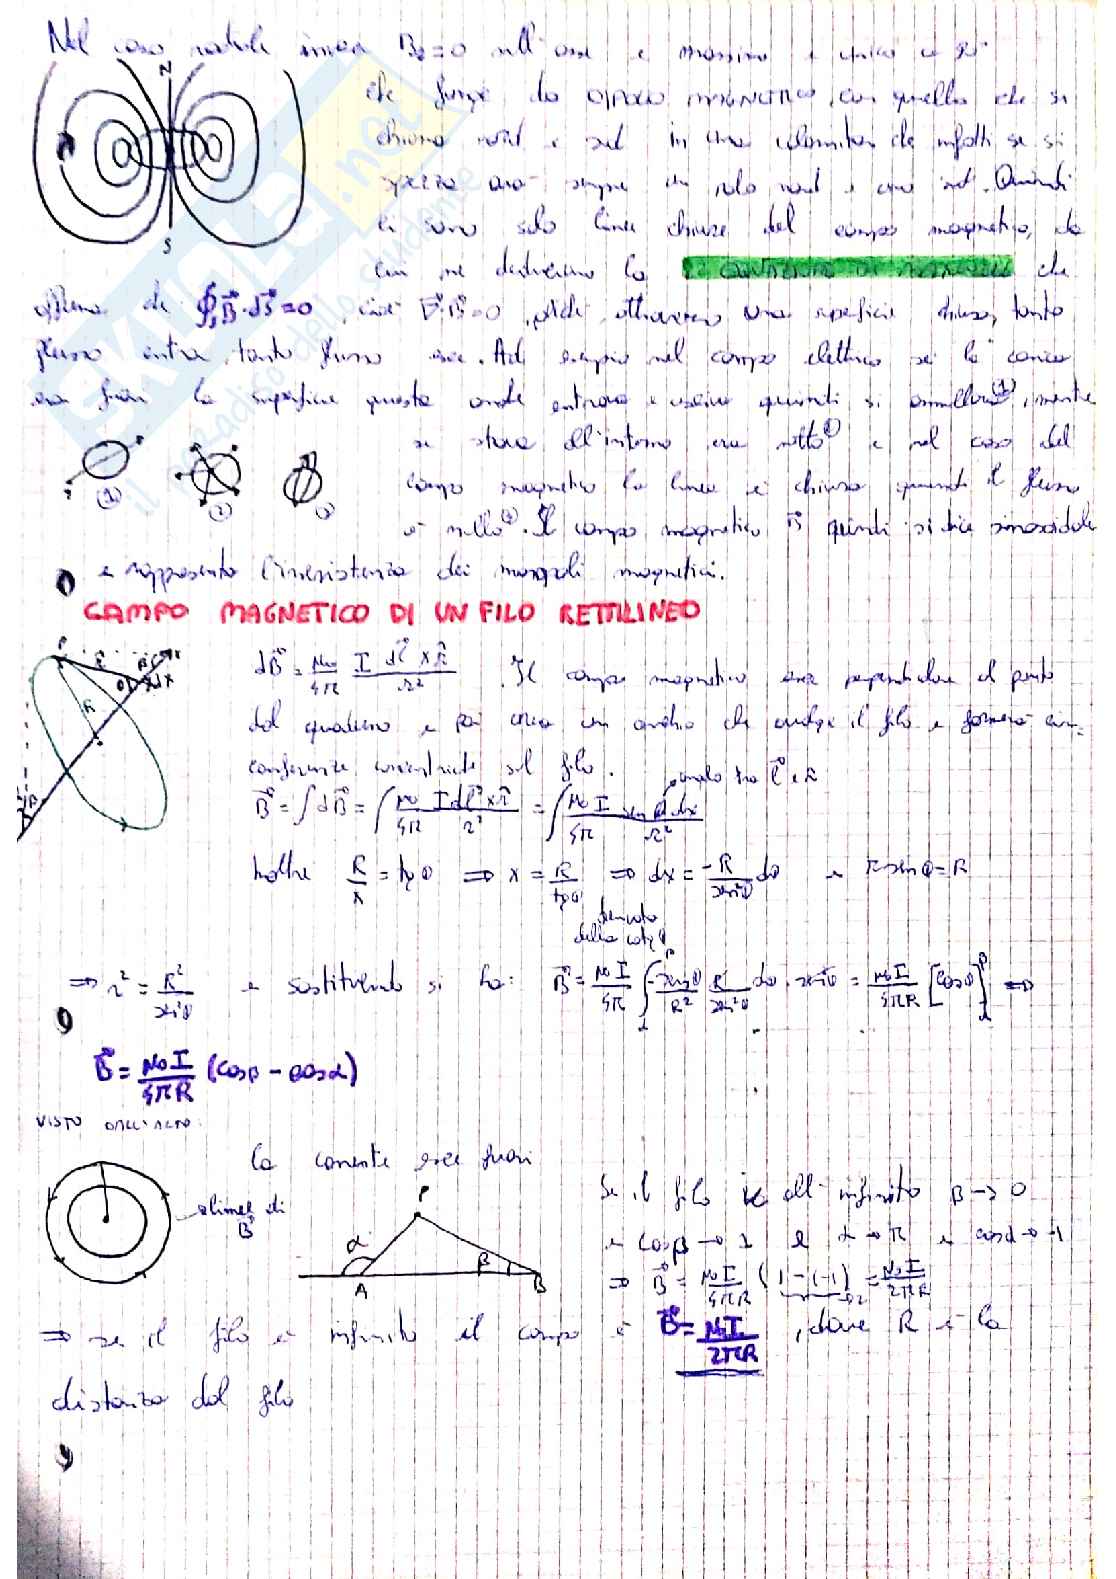 Nel caso radiale invece Bθ=0 sull'asse e massimo e unico a 90°
N
che funge da DIPOLO MAGNETICO, con quello che si
chiama nord e sud in una calamita che infatti se si
spezza avrà sempre un solo nord e uno sud. Quindi
ci sono solo linee chiuse del campo magnetico, da
S
cui ne deriveremo la EQUAZIONE DI MAXWELL che
afferma che ∮B⃗·dS⃗=0, cioè ∇·B⃗=0, poiché attraverso una superficie chiusa, tanto
flusso entra, tanto flusso esce. Ad esempio nel campo elettrico se la carica
era fuori la superficie questa entrava e usciva quindi si annullava (1), mentre
se stava all'interno era (2) e nel caso del
campo magnetico la linea è chiusa quindi il flusso
(1) (2) (3)
è nullo (3). Il campo magnetico B⃗ quindi si dice sinosoidale
e rappresenta l'inesistenza dei monopoli magnetici.
CAMPO MAGNETICO DI UN FILO RETTILINEO
dB⃗ = μ₀/4π I dl⃗ x r̂/r². Il campo magnetico esce perpendicolare al punto
dal quaderno e poi crea un che il filo e formerà cir-
conferenze concentriche sul filo. angolo tra l⃗ e r
B⃗ = ∫dB⃗ = ∫ μ₀/4π I dl⃗ x r̂/r² = ∫ μ₀ I/4π sen θ dx/r²
Inoltre R/x = tg θ ⇒ x = R/tgθ ⇒ dx = -R/sin²θ dθ e r sin θ = R
derivata
della cotg θ
⇒ r² = R²/sin²θ e sostituendo si ha: B⃗ = μ₀ I/4π ∫ -sin θ/R² R/sin²θ dθ · sin²θ = μ₀ I/4πR [cos θ] ⇒
B⃗ = μ₀ I/4πR (cosβ - cosα)
VISTO DALL'ALTO:
la corrente esce fuori
linee di
B⃗
P
α β
A B
Se il filo è all'infinito β → 0
e cosβ → 1 e α → π e cosα → -1
⇒ B⃗ = μ₀ I/4πR (1 - (-1)) = μ₀ I/2πR
→ 2
⇒ se il filo è infinito il campo è B⃗ = μ₀ I/2πR, dove R è la
distanza dal filo